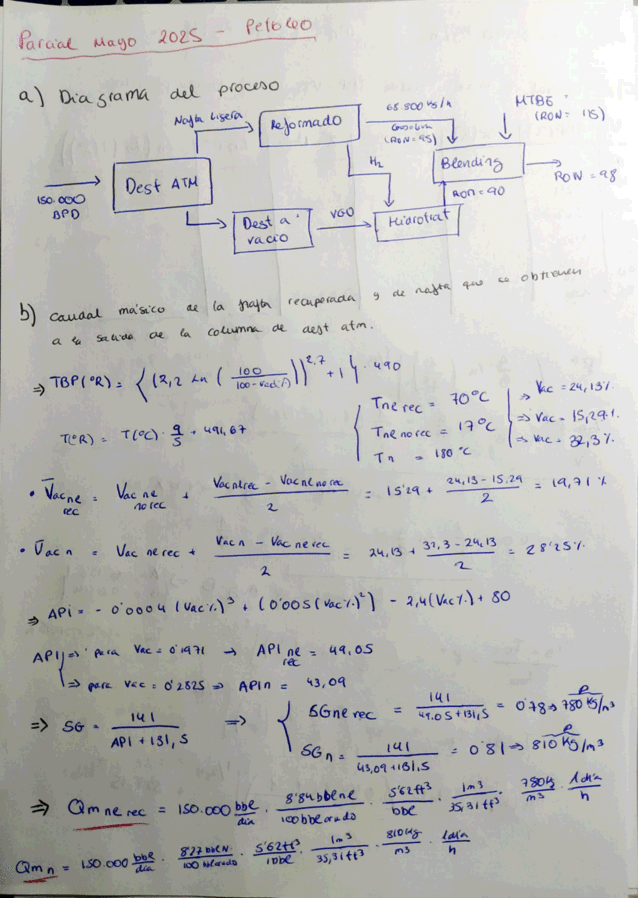 Parcial Mayo 2025 - Petróleo
a) Diagrama del proceso
Nafta Ligera
Reformado
65.500 kg/h
(RON=95)
MTBE
(RON = 115)
150.000
BPD
Dest ATM
H₂
Blending
RON = 98
RON = 90
Dest a
vacio
VGO
Hidrotrat
b) Caudal másico de la nafta recuperada y de nafta que se obtienen
a la salida de la columna de dest atm.
⇒ TBP (°R) = { (2,2 Ln ( 100 / 100-Vac(%) ))^2,7 + 1 } · 490
T(°R) = T(°C) · 9/5 + 491,67
Tne rec = 70°C ⇒ Vac = 24,13%
Tne no rec = 17°C ⇒ Vac = 15,29%
Tn = 180 °C ⇒ Vac = 32,3%
• V̄ac ne rec = Vac ne no rec + (Vac ne rec - Vac ne no rec) / 2 = 15'29 + (24,13 - 15,29) / 2 = 19,71 %
• V̄ac n = Vac ne rec + (Vac n - Vac ne rec) / 2 = 24,13 + (32,3 - 24,13) / 2 = 28'25%
⇒ API = - 0'0004 (Vac%)³ + (0'005 (Vac%)²) - 2,4 (Vac%) + 80
API ⇒ para Vac = 0'1971 → API ne rec = 49,05
⇒ para Vac = 0'2825 ⇒ API n = 43,09
⇒ SG = 141 / (API + 131,5) ⇒ SG ne rec = 141 / (49.05 + 131,5) = 0'78 ⇒ ρ 780 kg/m³
SG n = 141 / (43,09 + 131,5) = 0'81 ⇒ ρ 810 kg/m³
⇒ Qm ne rec = 150.000 bbl/día · 8'84 bbl ne/100 bbl crudo · 5'62 ft³/bbl · 1m³/35,31 ft³ · 780 kg/m³ · 1 día/h
Qm n = 150.000 bbl/día · 8'27 bbl N./100 bbl crudo · 5'62 ft³/1 bbl · 1m³/35,31 ft³ · 810 kg/m³ · 1 día/h